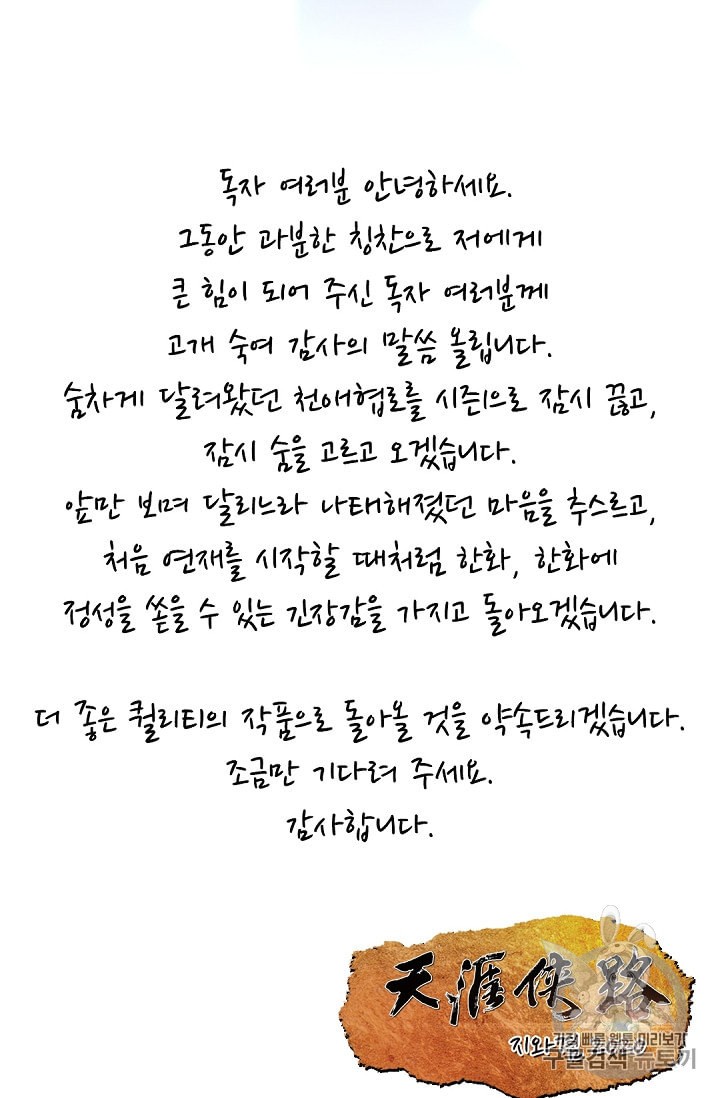 독자 여러분 안녕하세요.
그동안 과분한 칭찬으로 저에게
큰 힘이 되어 주신 독자 여러분께
고개 숙여 감사의 말씀 올립니다.
숨차게 달려왔던 천애협로를 시즌1으로 잠시 끊고,
잠시 숨을 고르고 오겠습니다.
앞만 보며 달리느라 나태해졌던 마음을 추스르고,
처음 연재를 시작할 때처럼 한화, 한화에
정성을 쏟을 수 있는 긴장감을 가지고 돌아오겠습니다.
더 좋은 퀄리티의 작품으로 돌아올 것을 약속드리겠습니다.
조금만 기다려 주세요.
감사합니다.
天涯俠路
가장 빠른 웹툰 미리보기
구글검색 뉴토끼